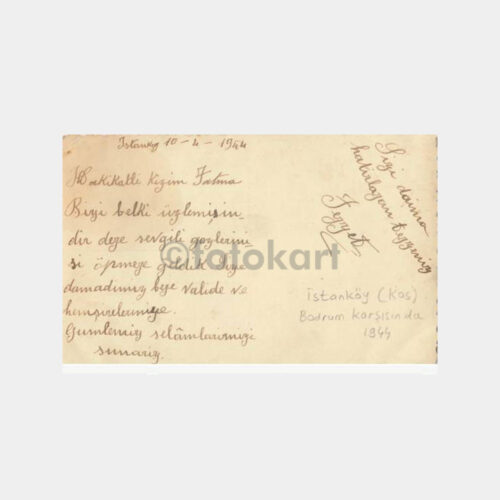 İstanköy 10-4-1944
Hakikatli kızım Fatma
Bizi belki üzlemişin
dir deye sevgili gözlerini
si öpmeye geldik size
damadımız beye valide ve
hemşirelerinize.
Cumlemiz selâmlarımızi
sunarız.
Sizi daima
hatırlayan teyzeniz
©fotokart
istanköy (Kos)
Bodrum karşısında
1944